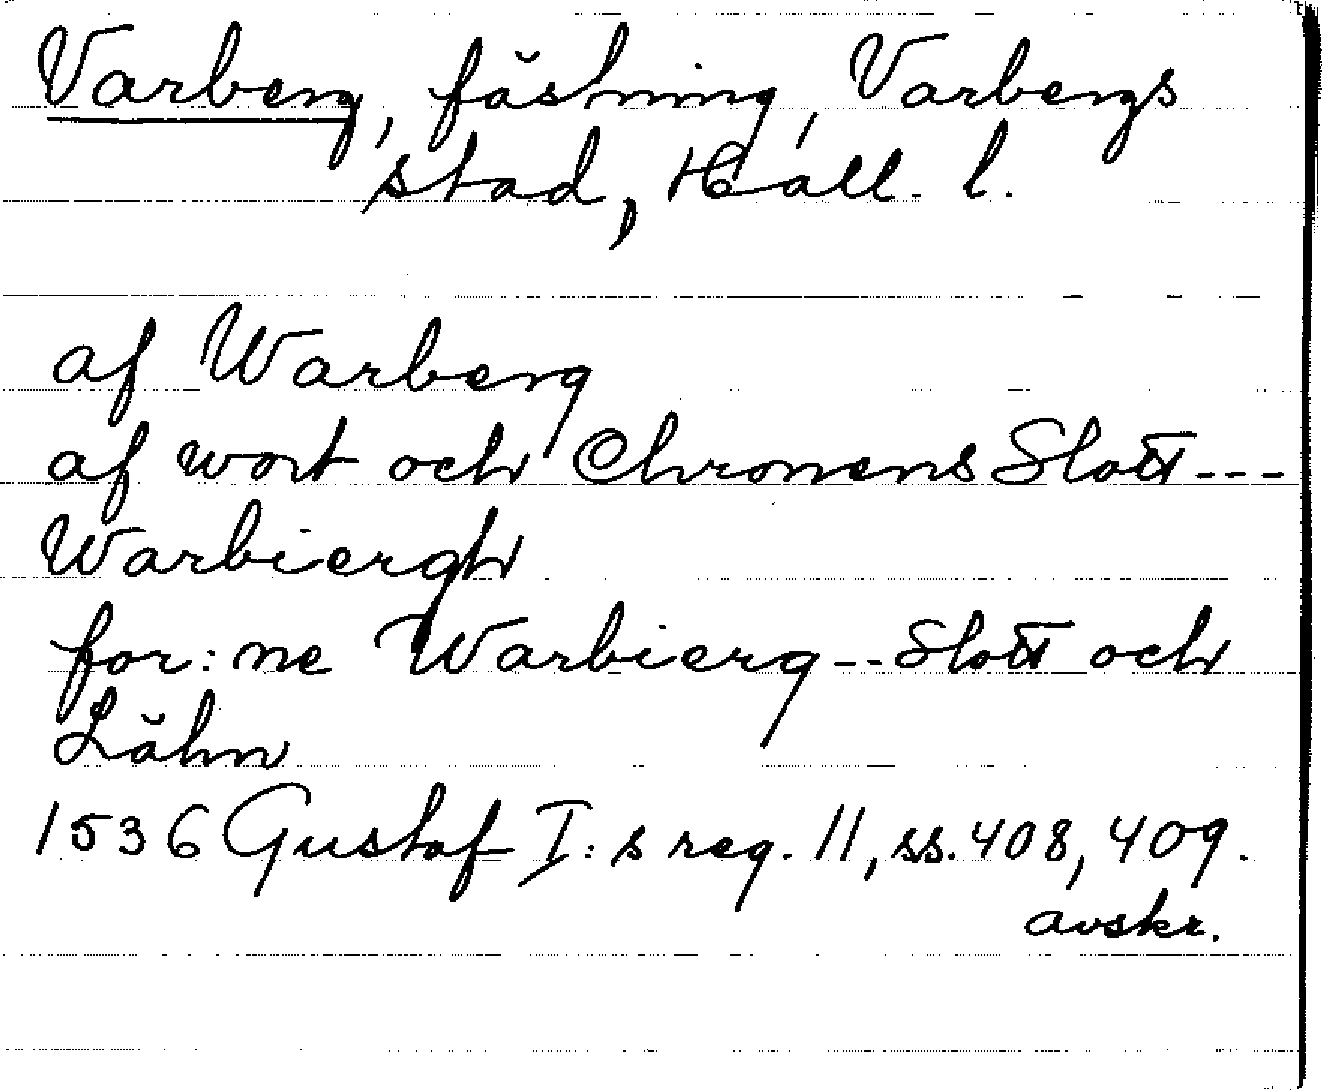 Varberg, fäst­ning, Varbergs
stad, Hall. l.
af Warberg
af wort och Chronens Slott ---
Warbiergh
for:ne Warbierg -- Slott och
Lähn
1536 Gustaf I:s reg. 11, ss. 408, 409.
avskr.